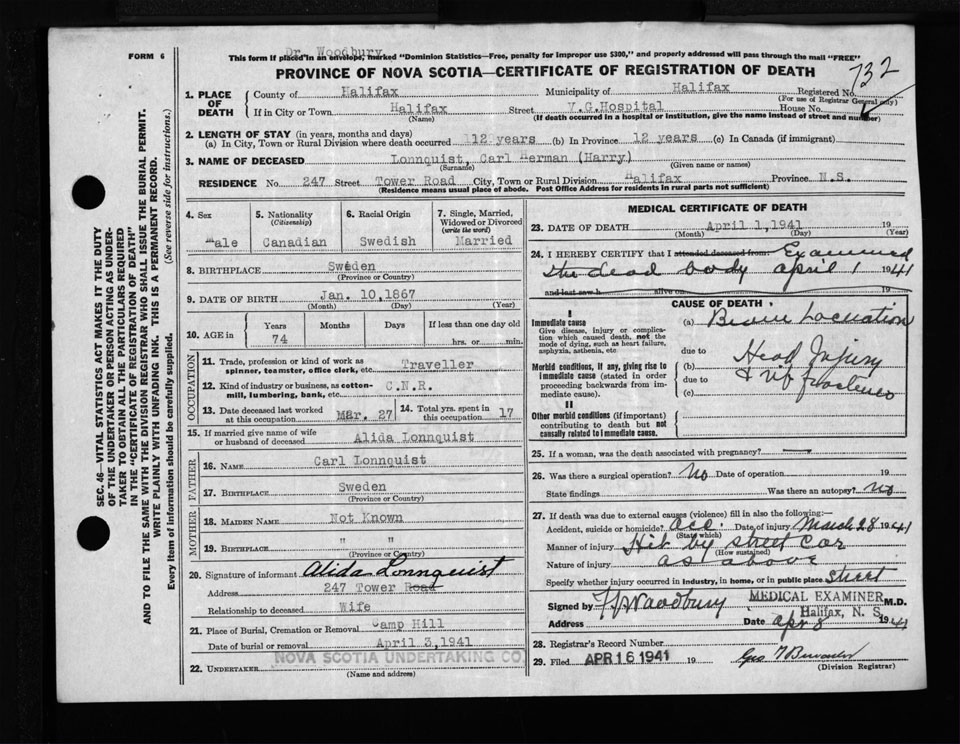 FORM 6
Dr. Woodbury
This form if placed in an envelope, marked "Dominion Statistics—Free, penalty for improper use $300," and properly addressed will pass through the mail "FREE"
PROVINCE OF NOVA SCOTIA—CERTIFICATE OF REGISTRATION OF DEATH
732
1. PLACE OF DEATH { County of Halifax Municipality of Halifax Registered No.
(For use of Registrar General only)
If in City or Town Halifax Street V.G.Hospital House No.
(Name) (If death occurred in a hospital or institution, give the name instead of street and number)
2. LENGTH OF STAY (in years, months and days)
(a) In City, Town or Rural Division where death occurred 12 years (b) In Province 12 years (c) In Canada (if immigrant)
3. NAME OF DECEASED Lonnquist, Carl Herman (Harry)
(Surname) (Given name or names)
RESIDENCE No. 247 Street Tower Road City, Town or Rural Division Halifax Province N.S.
(Residence means usual place of abode. Post Office Address for residents in rural parts not sufficient)
4. Sex Male
5. Nationality (Citizenship) Canadian
6. Racial Origin Swedish
7. Single, Married, Widowed or Divorced (write the word) Married
8. BIRTHPLACE Sweden
(Province or Country)
9. DATE OF BIRTH Jan. 10,1867
(Month) (Day) (Year)
10. AGE in { Years Months Days If less than one day old
74 hrs. or min.
OCCUPATION
11. Trade, profession or kind of work as spinner, teamster, office clerk, etc. Traveller
12. Kind of industry or business, as cotton-mill, lumbering, bank, etc. C.N.R.
13. Date deceased last worked at this occupation Mar. 27
14. Total yrs. spent in this occupation 17
15. If married give name of wife or husband of deceased Alida Lonnquist
FATHER
16. NAME Carl Lonnquist
17. BIRTHPLACE Sweden
(Province or Country)
MOTHER
18. MAIDEN NAME Not Known
19. BIRTHPLACE " "
(Province or Country)
20. Signature of informant Alida Lonnquist
Address 247 Tower Road
Relationship to deceased Wife
21. Place of Burial, Cremation or Removal Camp Hill
Date of burial or removal April 3,1941
22. UNDERTAKER NOVA SCOTIA UNDERTAKING CO.
(Name and address)
MEDICAL CERTIFICATE OF DEATH
23. DATE OF DEATH April 1,1941 19
(Month) (Day)
24. I HEREBY CERTIFY that I attended deceased from: Examined
the dead body april 1 1941
and last saw h alive on 19
CAUSE OF DEATH
I
Immediate cause
Give disease, injury or complication which caused death, not the mode of dying, such as heart failure, asphyxia, asthenia, etc.
(a) Brain Laceration
due to
Morbid conditions, if any, giving rise to immediate cause (stated in order proceeding backwards from immediate cause).
(b) Head Injury
due to & rib fractures
(c)
II
Other morbid conditions (if important) contributing to death but not causally related to immediate cause.
25. If a woman, was the death associated with pregnancy? —
26. Was there a surgical operation? No Date of operation 19
State findings Was there an autopsy? No
27. If death was due to external causes (violence) fill in also the following:—
Accident, suicide or homicide? acc. Date of injury March 28 1941
(State which)
Manner of injury Hit by street car
(How sustained)
Nature of injury as above
Specify whether injury occurred in industry, in home, or in public place street
Signed by Woodbury MEDICAL EXAMINER M.D.
Halifax, N. S.
Address Date apr 8 1941
28. Registrar's Record Number
29. Filed APR 16 1941 19
(Division Registrar)
SEC. 46—VITAL STATISTICS ACT MAKES IT THE DUTY
OF THE UNDERTAKER OR PERSON ACTING AS UNDER-
TAKER TO OBTAIN ALL THE PARTICULARS REQUIRED
IN THE "CERTIFICATE OF REGISTRATION OF DEATH"
AND TO FILE THE SAME WITH THE DIVISION REGISTRAR WHO SHALL ISSUE THE BURIAL PERMIT.
WRITE PLAINLY WITH UNFADING INK. THIS IS A PERMANENT RECORD.
Every item of information should be carefully supplied. (See reverse side for instructions.)